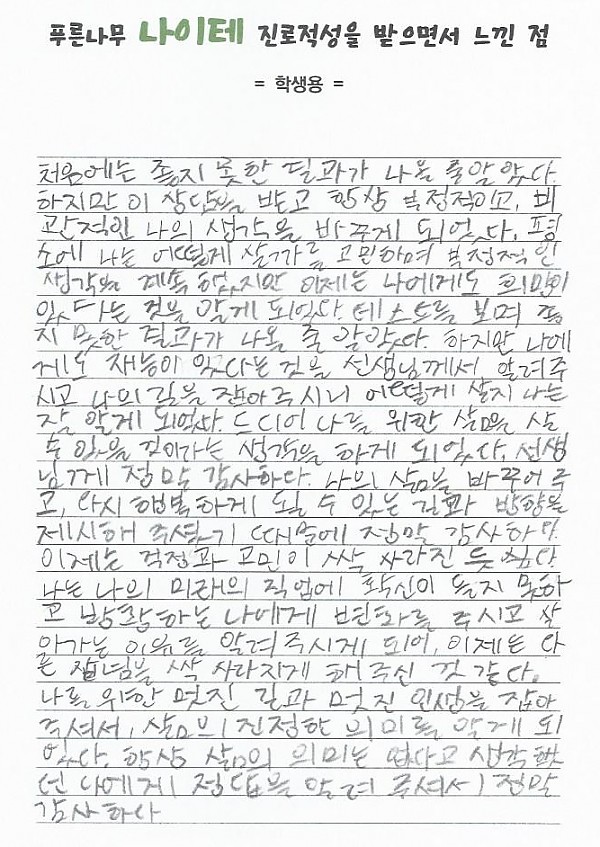 푸른나무 나이테 진로적성을 받으면서 느낀 점
= 학생용 =
처음에는 좋지 못한 결과가 나올 줄 알았다.
하지만 이 상담을 받고 항상 부정적이고, 비
관적인 나의 생각을 바꾸게 되었다. 평
소에 나는 어떻게 살까를 고민하며 부정적인
생각을 계속 했지만 이제는 나에게도 희망이
있다는 것을 알게 되었다. 테스트를 보며 좋
지 못한 결과가 나올 줄 알았다. 하지만 나에
게도 재능이 있다는 것을 선생님께서 알려주
시고 나의 길을 잡아주시니 어떻게 살지 나는
잘 알게 되었다. 드디어 나를 위한 삶을 살
수 있을 것이라는 생각을 하게 되었다. 선생
님께 정말 감사하다. 나의 삶을 바꾸어 주
고, 다시 행복하게 될 수 있는 길과 방향을
제시해 주셨기 때문에 정말 감사하다.
이제는 걱정과 고민이 싹 사라진 듯 싶다.
나는 나의 미래의 직업에 확신이 들지 못하
고 방황하는 나에게 변화를 주시고 살
아가는 이유를 알려주시게 되어, 이제는 다
른 잡념을 싹 사라지게 해 주신 것 같다.
나를 위한 멋진 길과 멋진 인생을 잡아
주셔서, 삶의 진정한 의미를 알게 되
었다. 항상 삶의 의미는 없다고 생각했
던 나에게 정답을 알려 주셔서 정말
감사하다